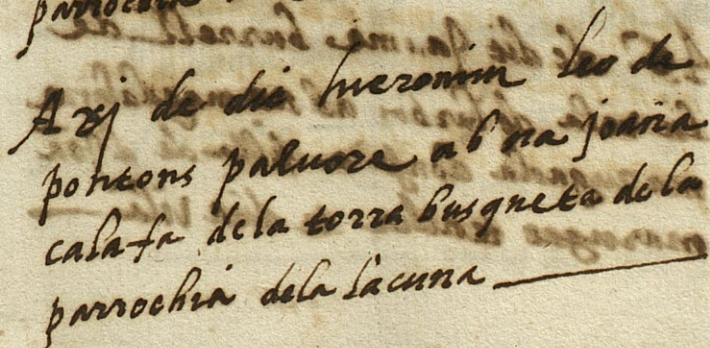 parrochia
A xj de die hieronim leo de
pontons paluore ab na joana
calafa dela torra busqueta de la
parrochia dela lacuna